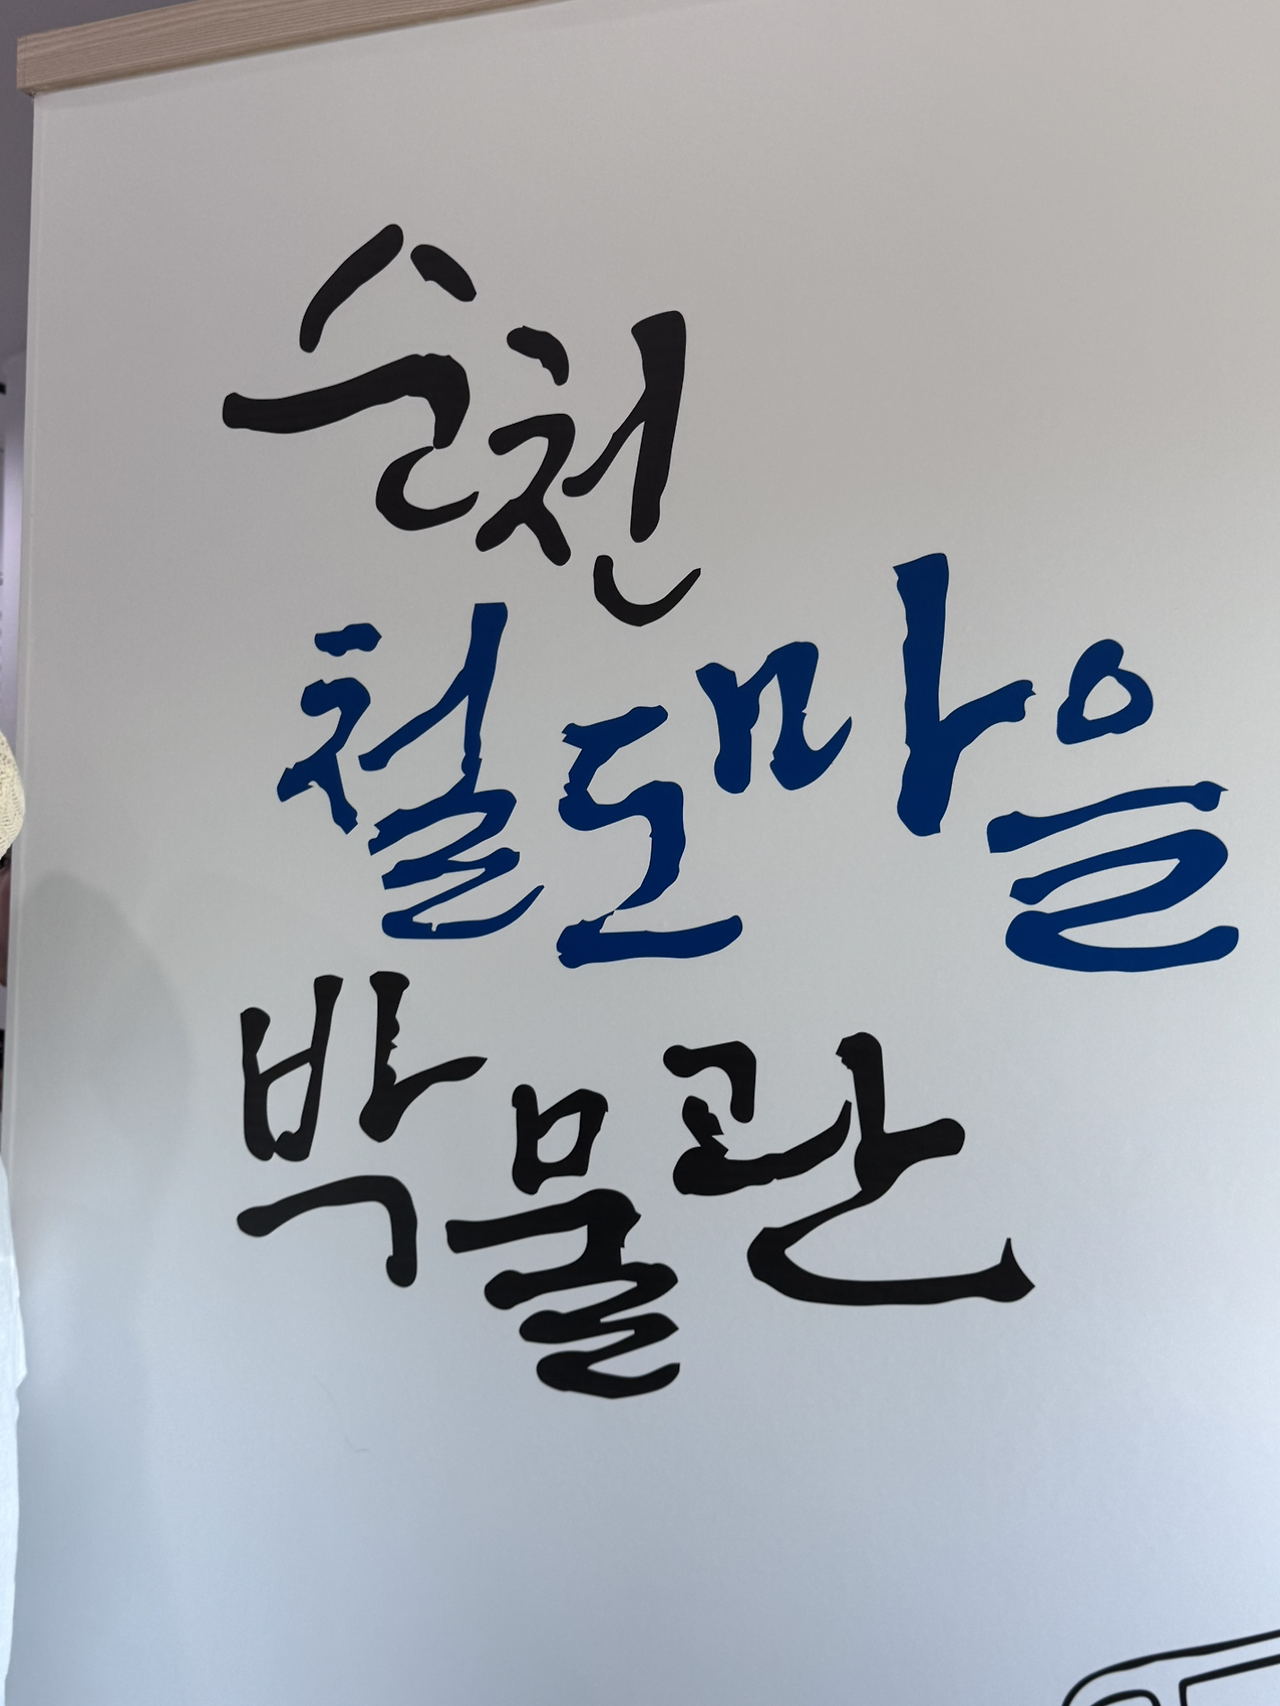 순천
철도마을
박물관